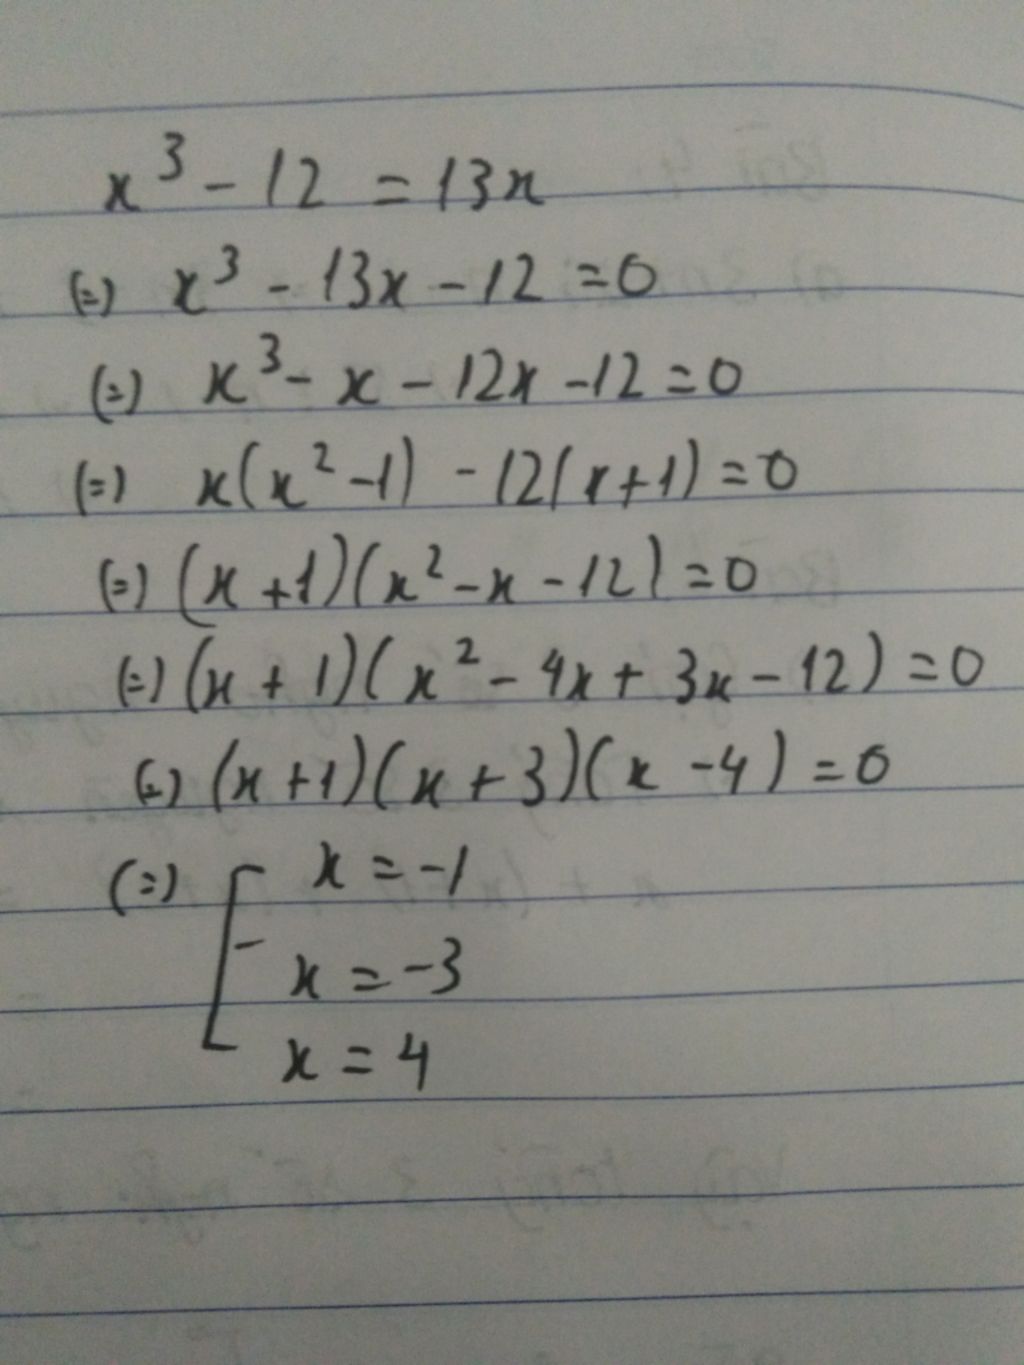 x³ - 12 = 13x
(=) x³ - 13x - 12 = 0
(=) x³ - x - 12x - 12 = 0
(=) x(x² - 1) - 12(x + 1) = 0
(=) (x + 1)(x² - x - 12) = 0
(=) (x + 1)(x² - 4x + 3x - 12) = 0
(=) (x + 1)(x + 3)(x - 4) = 0
(=) [ x = -1
x = -3
x = 4